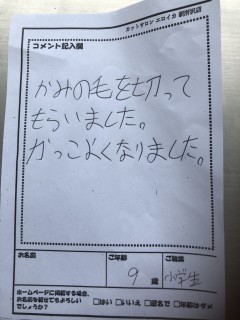 カットサロン エロイカ 新所沢店
コメント記入欄
かみの毛を切って
もらいました。
かっこよくなりました。
お名前
ご年齢
9 歳
ご職業
小学生
ホームページに掲載する場合、
お名前を載せてもよろしい
でしょうか?
□はい □いいえ □匿名で □年齢のみ